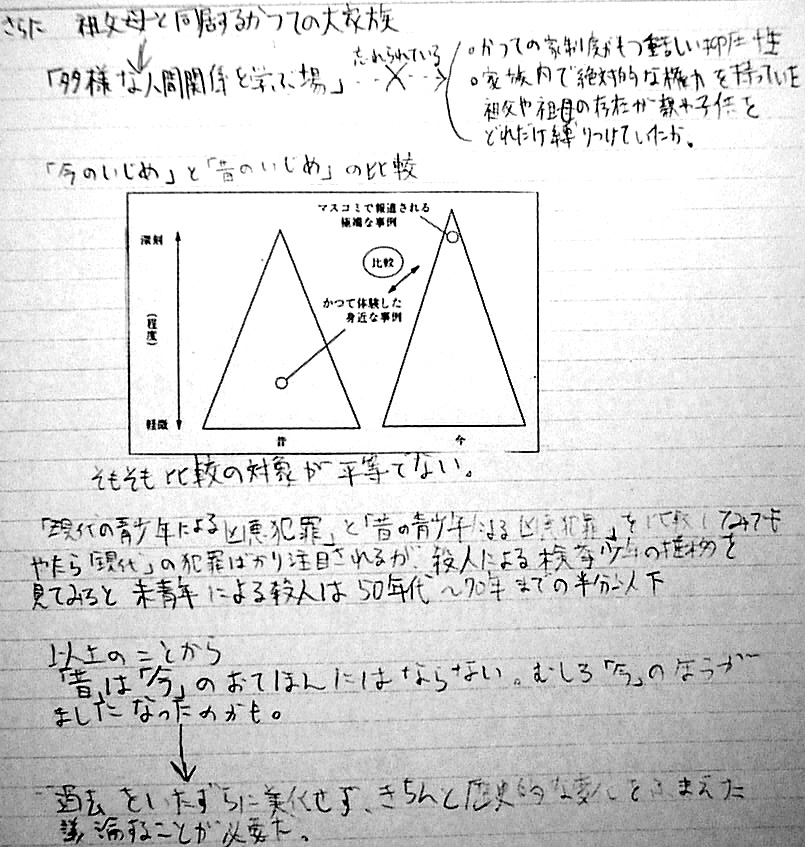 さらに 祖父母と同居するかつての大家族
「多様な人間関係を学ぶ場」
忘れられている
○かつての家制度がもつ重苦しい抑圧性
○家族内で絶対的な権力を持っていた
祖父や祖母の存在が親や子供を
どれだけ縛りつけていたか。
「今のいじめ」と「昔のいじめ」の比較
マスコミで報道される
極端な事例
深刻
比較
かつて体験した
身近な事例
(程度)
軽微
昔
今
そもそも比較の対象が平等でない。
「現代の青少年による凶悪犯罪」と「昔の青少年による凶悪犯罪」を比較してみても
やたら「現代」の犯罪ばかり注目されるが、殺人による検挙少年の推移を
見てみると 未青年による殺人は50年代〜70年までの半分以下
以上のことから
「昔」は「今」のおてほんにはならない。むしろ「今」のほうが
ましになったのかも。
過去をいたずらに美化せず、きちんと歴史的な変化をふまえた
議論することが必要だ。